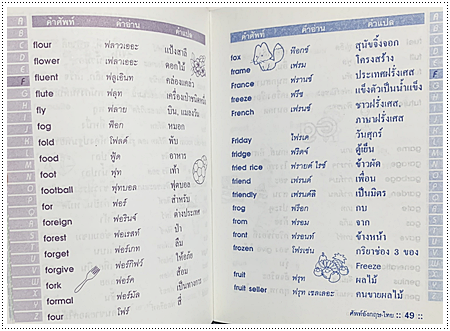 คำศัพท์ คำอ่าน คำแปล
flour ฟลาวเออะ แป้งสาลี
flower เฟลาเออะ ดอกไม้
fluent ฟลูเอินท์ คล่องแคล่ว
flute ฟลุท เครื่องเป่าชนิดหนึ่ง
fly ฟลาย บิน, แมลงวัน
fog ฟ็อก หมอก
fold โฟลด์ พับ
food ฟู้ด อาหาร
foot ฟุท เท้า
football ฟุทบอล ฟุตบอล
for ฟอร์ สำหรับ
foreign ฟอรินจ์ ต่างประเทศ
forest ฟอเรสท์ ป่า
forget ฟอร์เกท ลืม
forgive ฟอร์กีฟว์ ให้อภัย
fork ฟอร์ค ส้อม
formal ฟอร์มัล เป็นทางการ
four โฟร์ สี่
คำศัพท์ คำอ่าน คำแปล
fox ฟ็อกซ์ สุนัขจิ้งจอก
frame เฟรม โครงสร้าง
France ฟรานซ์ ประเทศฝรั่งเศส
freeze ฟรีซ แข็งตัวเป็นน้ำแข็ง
French เฟรนช์ ชาวฝรั่งเศส,
ภาษาฝรั่งเศส
Friday ไฟรเด วันศุกร์
fridge ฟริดจ์ ตู้เย็น
fried rice ฟรายด์ ไรซ์ ข้าวผัด
friend เฟรนด์ เพื่อน
friendly เฟรนด์ลี เป็นมิตร
frog ฟร็อก กบ
from ฟรอม จาก
front ฟรอนท์ ข้างหน้า
frozen โฟรเซ่น กริยาช่อง 3 ของ
Freeze
fruit ฟรุท ผลไม้
fruit seller ฟรุท เซลเลอะ คนขายผลไม้
ศัพท์อังกฤษ-ไทย :: 49 ::